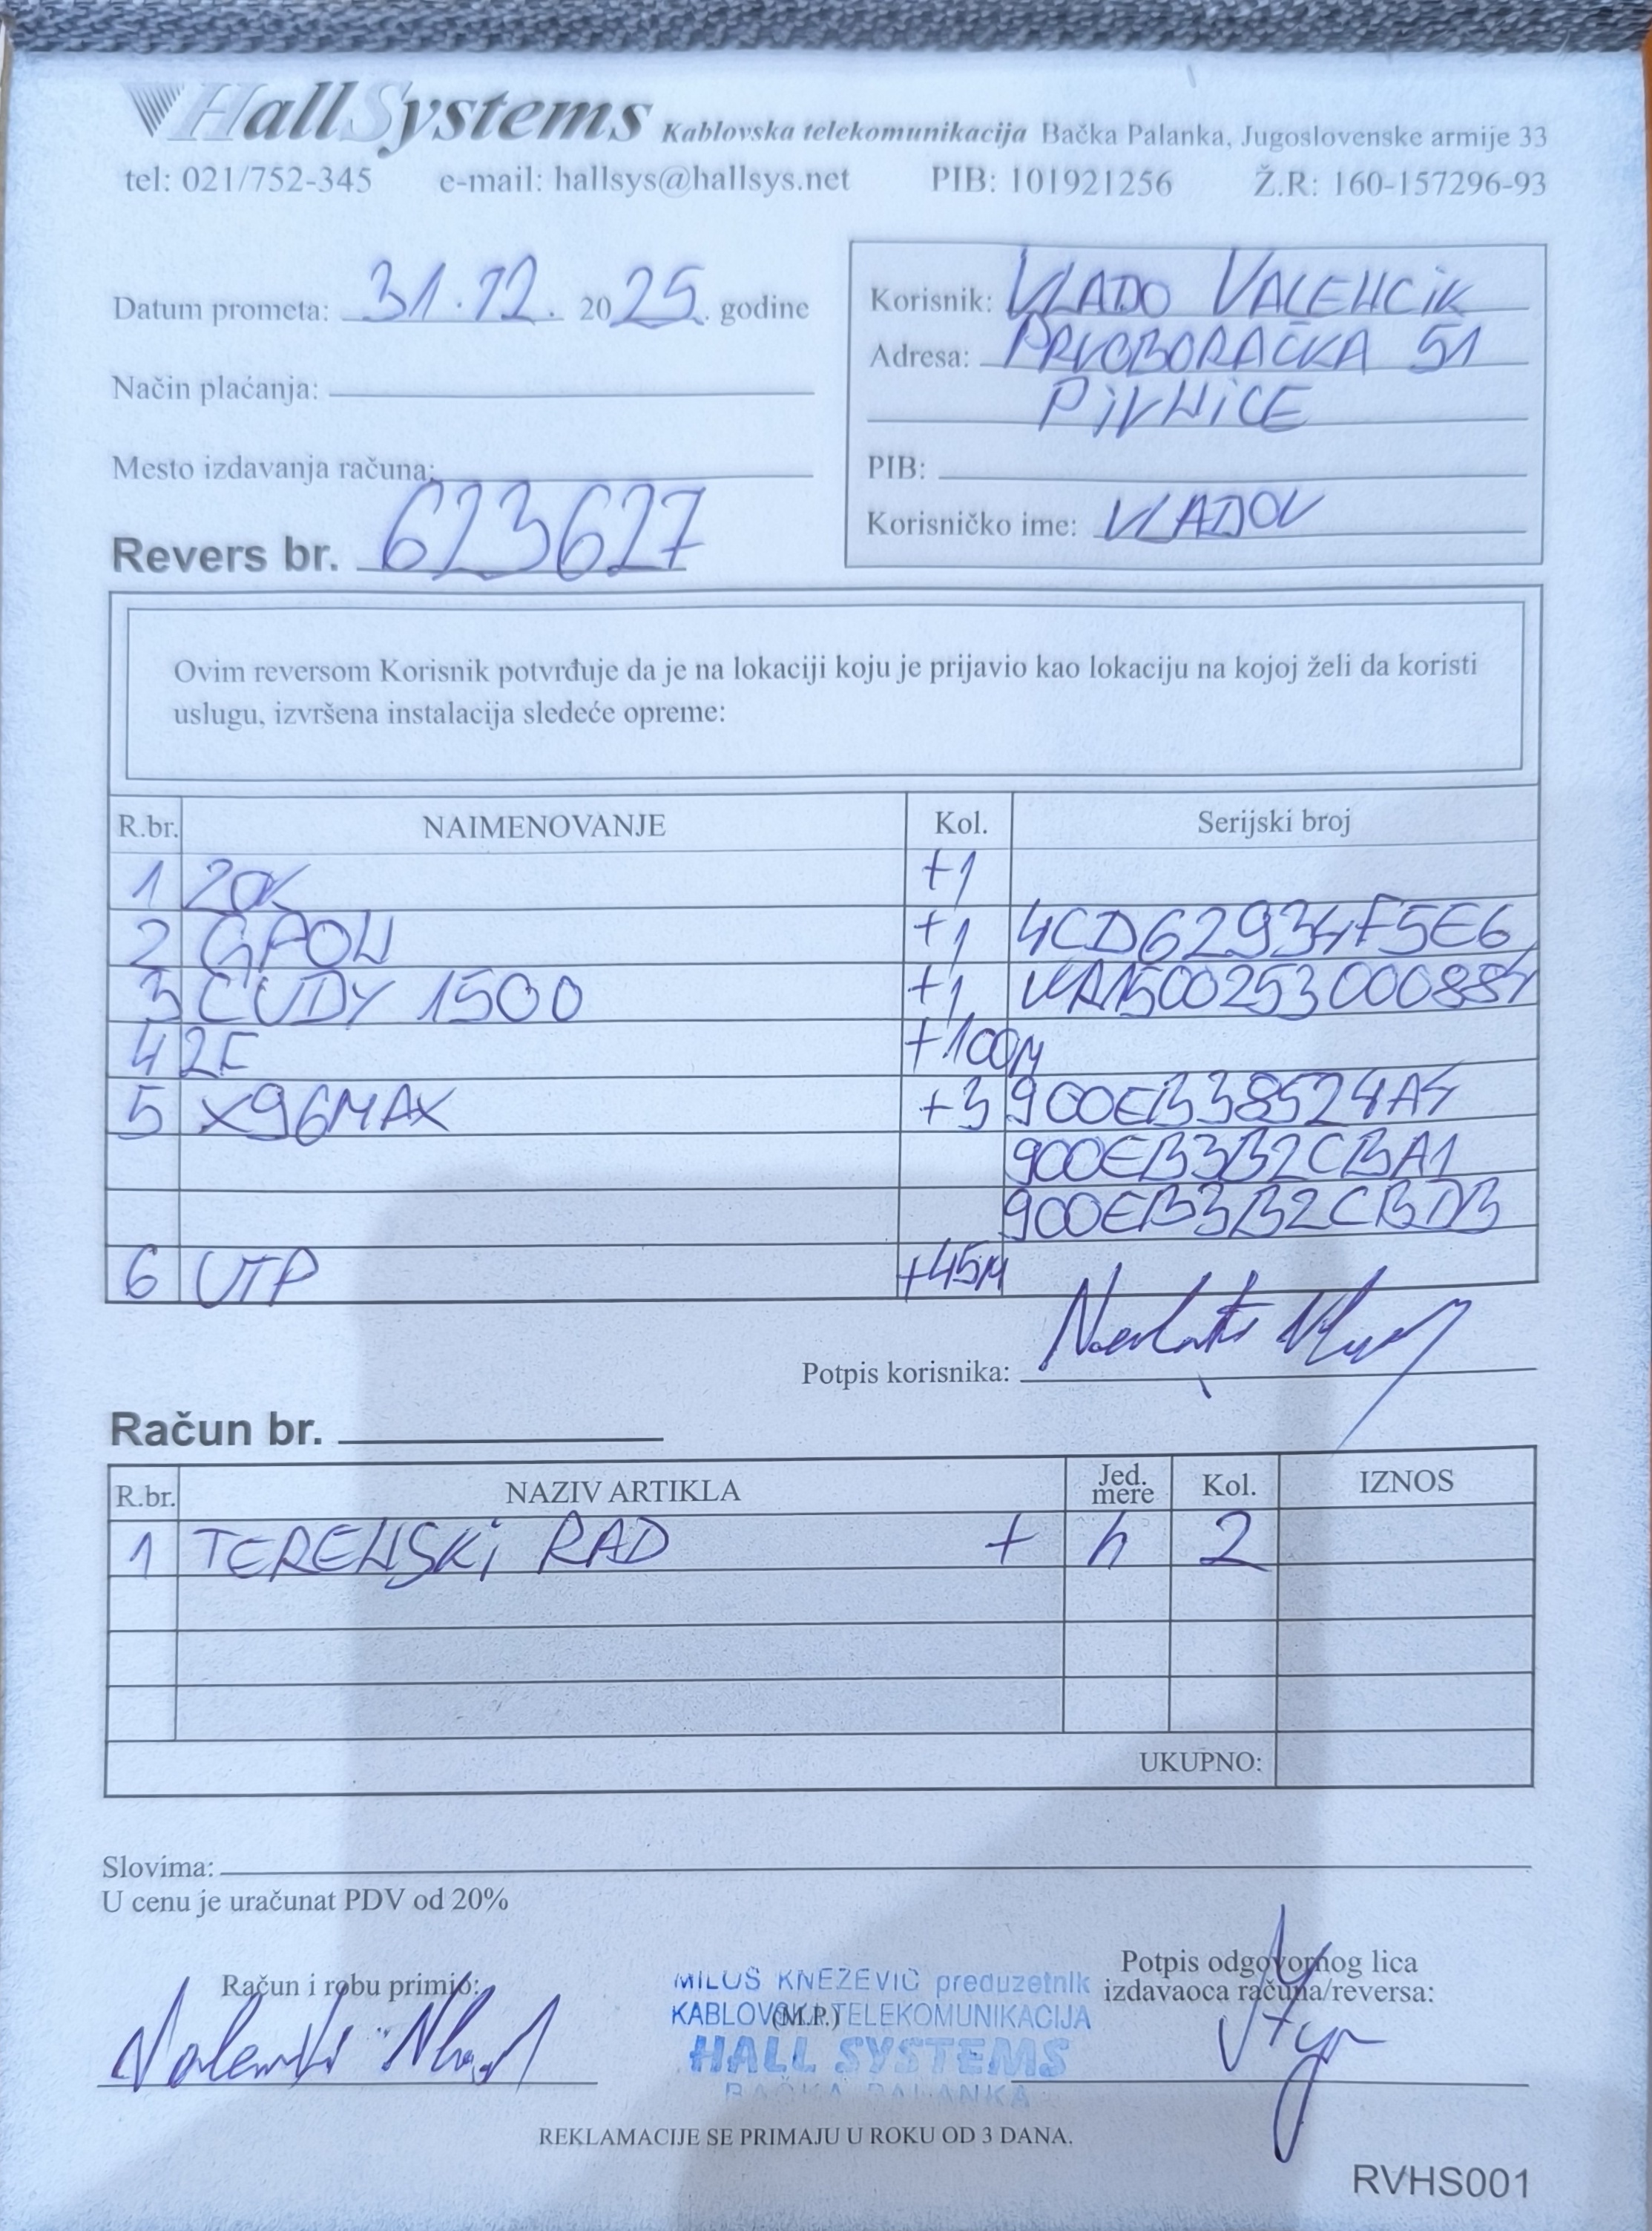 HallSystems Kablovska telekomunikacija Bačka Palanka, Jugoslovenske armije 33
tel: 021/752-345 e-mail: hallsys@hallsys.net PIB: 101921256 Ž.R: 160-157296-93
Datum prometa: 31.12. 2025. godine
Način plaćanja:
Mesto izdavanja računa:
Revers br. 623627
Korisnik: VLADO VALENCIK
Adresa: PRVOBORAČKA 51
PIVNICE
PIB:
Korisničko ime: VLADOV
Ovim reversom Korisnik potvrđuje da je na lokaciji koju je prijavio kao lokaciju na kojoj želi da koristi
uslugu, izvršena instalacija sledeće opreme:
R.br. NAIMENOVANJE Kol. Serijski broj
1 ZOK +1
2 GPON +1 4CD62934F5E6
3 CUDY 1500 +1
4 2F +100M
5 X96MAX +3 900EB38524A4
900EB3B2CBA1
900EB3B2CBDB
6 UTP +45M
Potpis korisnika:
Račun br.
R.br. NAZIV ARTIKLA Jed. mere Kol. IZNOS
1 TERENSKI RAD + h 2
UKUPNO:
Slovima:
U cenu je uračunat PDV od 20%
Račun i robu primio:
MILOŠ KNEŽEVIĆ preduzetnik
KABLOVSKA TELEKOMUNIKACIJA
(M.P.)
HALL SYSTEMS
BAČKA PALANKA
Potpis odgovornog lica
izdavaoca računa/reversa:
REKLAMACIJE SE PRIMAJU U ROKU OD 3 DANA.
RVHS001